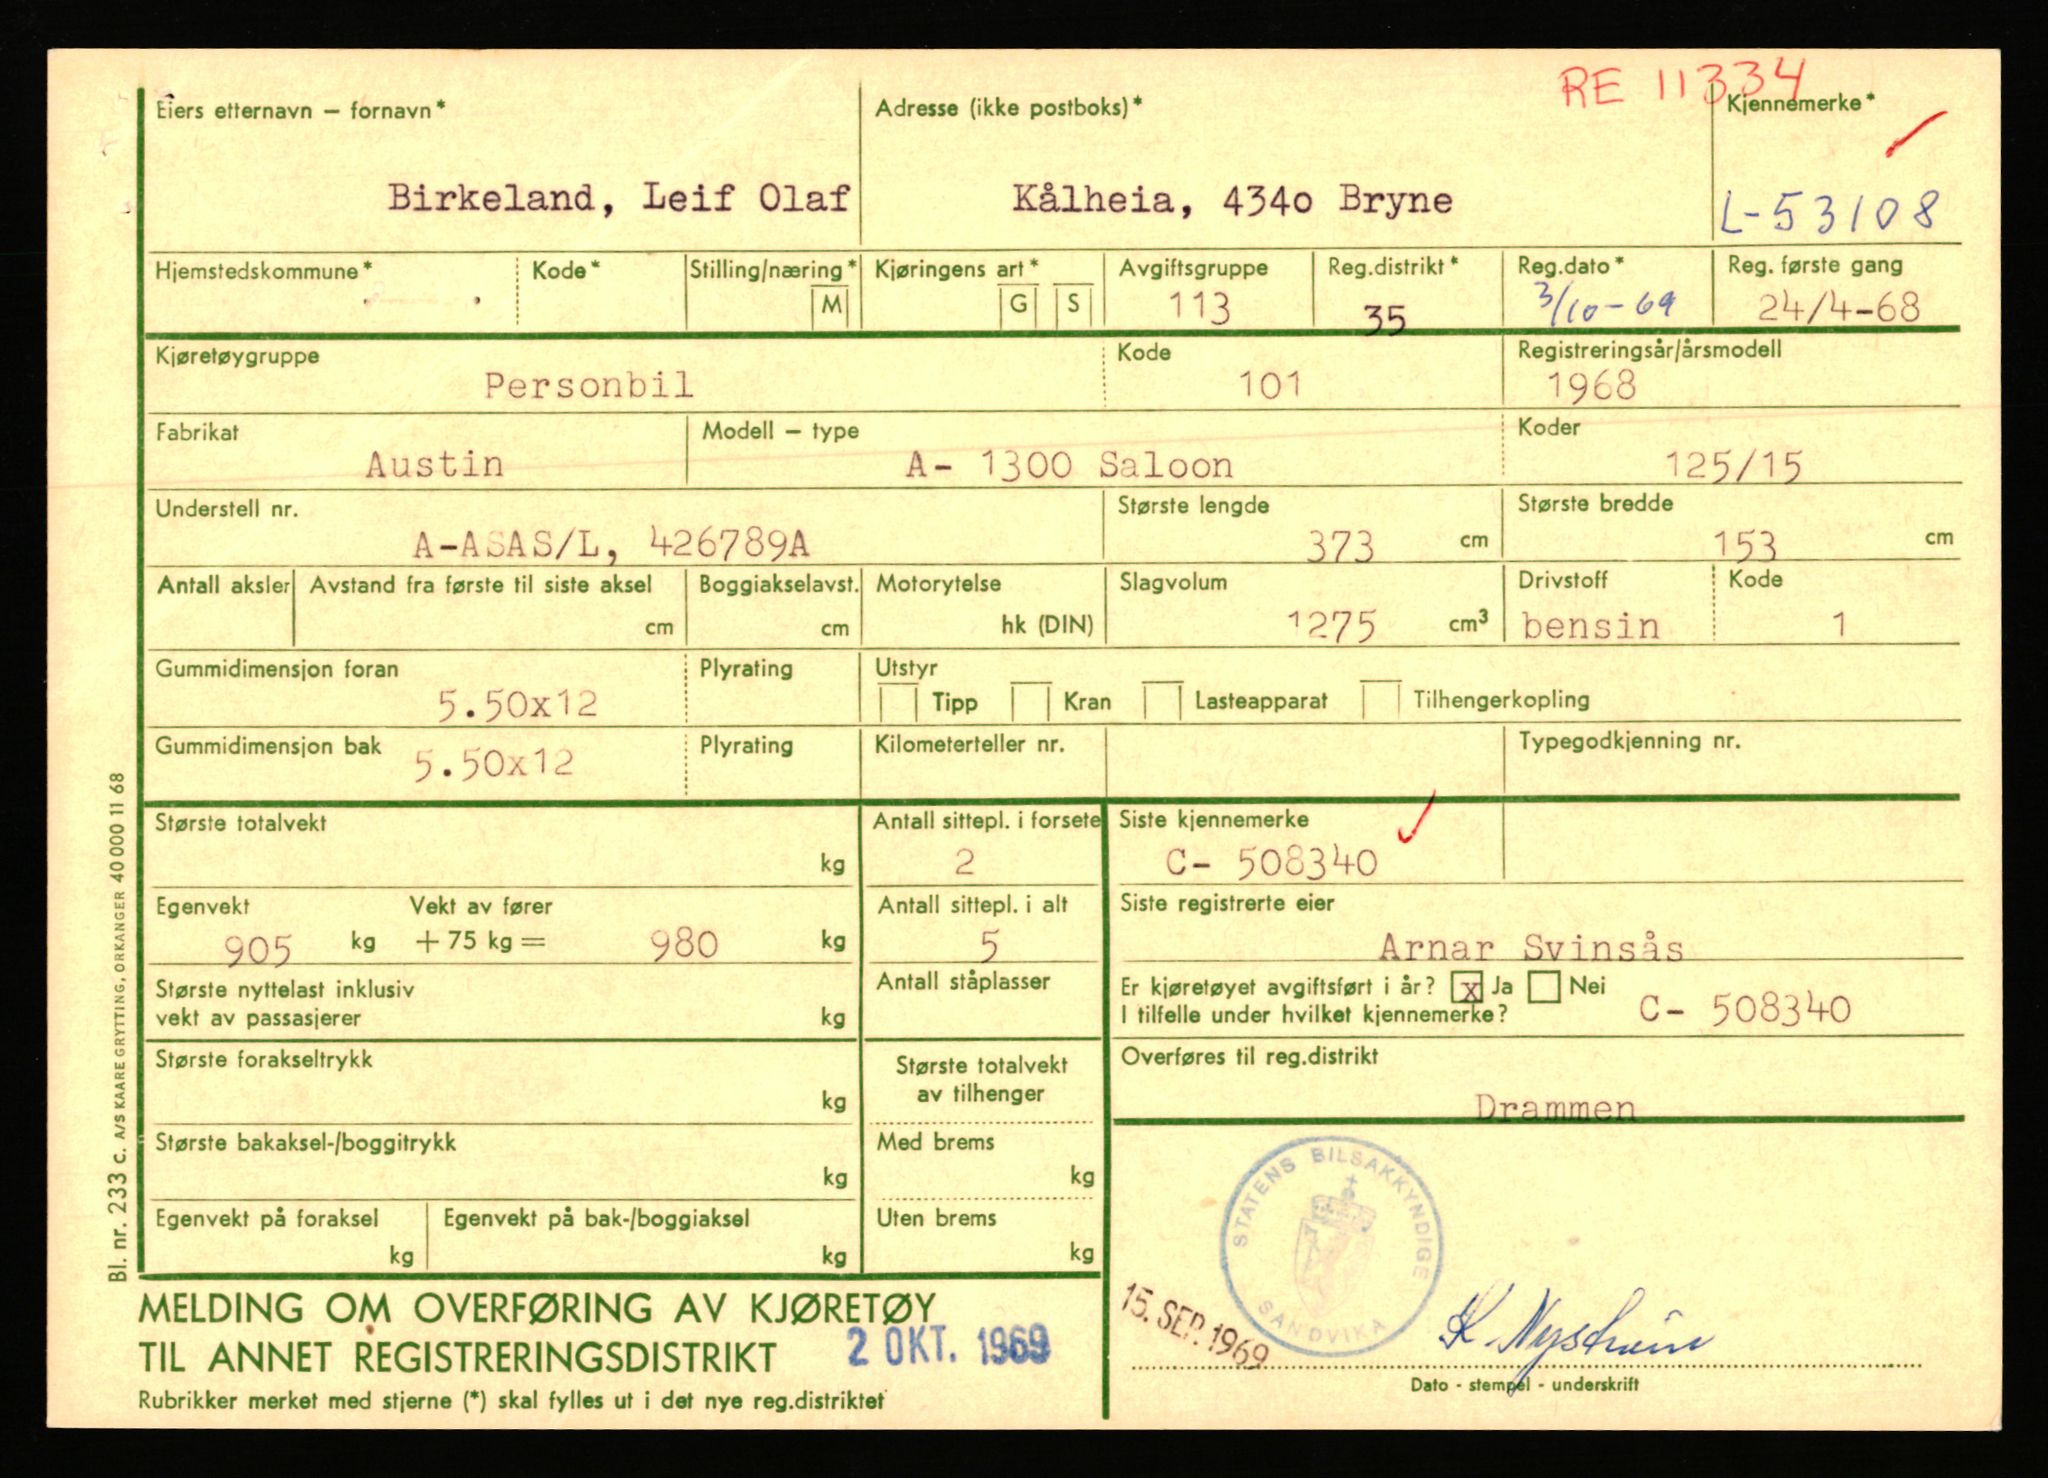 RE 11334
Eiers etternavn – fornavn*
Adresse (ikke postboks)*
Kjennemerke*
Birkeland, Leif Olaf
Kålheia, 4340 Bryne
L-53108
Hjemstedskommune*
Kode*
Stilling/næring*
M
Kjøringens art*
G
S
Avgiftsgruppe
113
Reg.distrikt*
35
Reg.dato*
3/10-69
Reg. første gang
24/4-68
Kjøretøygruppe
Personbil
Kode
101
Registreringsår/årsmodell
1968
Fabrikat
Austin
Modell – type
A- 1300 Saloon
Koder
125/15
Understell nr.
A-ASAS/L, 426789A
Største lengde
373 cm
Største bredde
153 cm
Antall aksler
Avstand fra første til siste aksel
cm
Boggiakselavst.
cm
Motorytelse
hk (DIN)
Slagvolum
1275 cm3
Drivstoff
bensin
Kode
1
Gummidimensjon foran
5.50x12
Plyrating
Utstyr
Tipp
Kran
Lasteapparat
Tilhengerkopling
Gummidimensjon bak
5.50x12
Plyrating
Kilometerteller nr.
Typegodkjenning nr.
Største totalvekt
kg
Antall sittepl. i forsete
2
Siste kjennemerke
C- 508340
Egenvekt
905 kg
Vekt av fører
+ 75 kg = 980 kg
Antall sittepl. i alt
5
Siste registrerte eier
Arnar Svinsås
Største nyttelast inklusiv
vekt av passasjerer
kg
Antall ståplasser
Er kjøretøyet avgiftsført i år? x Ja Nei
I tilfelle under hvilket kjennemerke?
C- 508340
Største forakseltrykk
kg
Største totalvekt
av tilhenger
Overføres til reg.distrikt
Drammen
Største bakaksel-/boggitrykk
kg
Med brems
kg
Egenvekt på foraksel
kg
Egenvekt på bak-/boggiaksel
kg
Uten brems
kg
STATENS BILSAKKYNDIGE
SANDVIKA
15. SEP. 1969
K Nystrøm
Dato - stempel - underskrift
MELDING OM OVERFØRING AV KJØRETØY
TIL ANNET REGISTRERINGSDISTRIKT
2 OKT. 1969
Rubrikker merket med stjerne (*) skal fylles ut i det nye reg.distriktet
Bl. nr. 233 c. A/S KAARE GRYTTING, ORKANGER 40 000 11 68